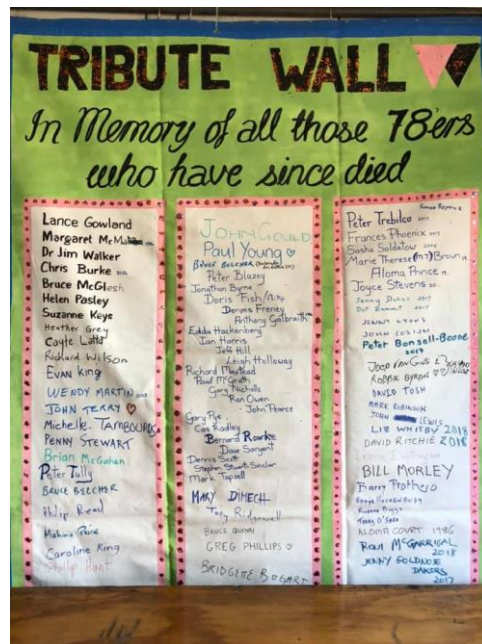 TRIBUTE WALL
In Memory of all those 78'ers
who have since died
Lance Gowland
Margaret
Dr Jim Walker
Chris Burke
Bruce McGlesh
Helen Pasley
Suzanne Keye
Heather Grey
Cayte Latta
Richard Wilson
EVAN King
WENDY MARTIN
JOHN TERRY
Michelle. TAMBOURAS
PENNY STEWART
Brian McGahen
Peter Tully
BRUCE BELCHER
Philip Read
Caroline King
Hunt
JOHN GOULD
Paul Young
BRUCE BELCHER
Peter Blazey
Jonathon Byrne
Doris Fish
Dennis Freney
Anthony Galbraith
Edda Hackenberg
Ian Harris
Jeff Hill
Leigh Holloway
Richard
Paul McGrath
Gary Nicholls
Ron Owen
John Pearce
Gary Pye
Cas Radley
Bernard Rourke
Dave Sargent
Dennis Scott
Stephen
Mark Tapsell
MARY DIMECH
Tony Ridgewell
BRUCE QUINN
GREG PHILLIPS
BRIDGETTE BOGART
Peter Trebilco
Frances Phoenix
Sasha Soldatow
Marie Therese Brown
Aloma Prince
Joyce Stevens
2017
2017
JENNY
JOHN COZIJN
Peter Bonsall-Boone
ROBBIE BYRON
DAVID TOSH
MARK ROBINSON
JOHN LEWIS
LIZ WHITBY 2018
DAVID RITCHIE 2018
BILL MORLEY
Barry Prothero
ALOMA COURT 1986
2018
JENNY
2017